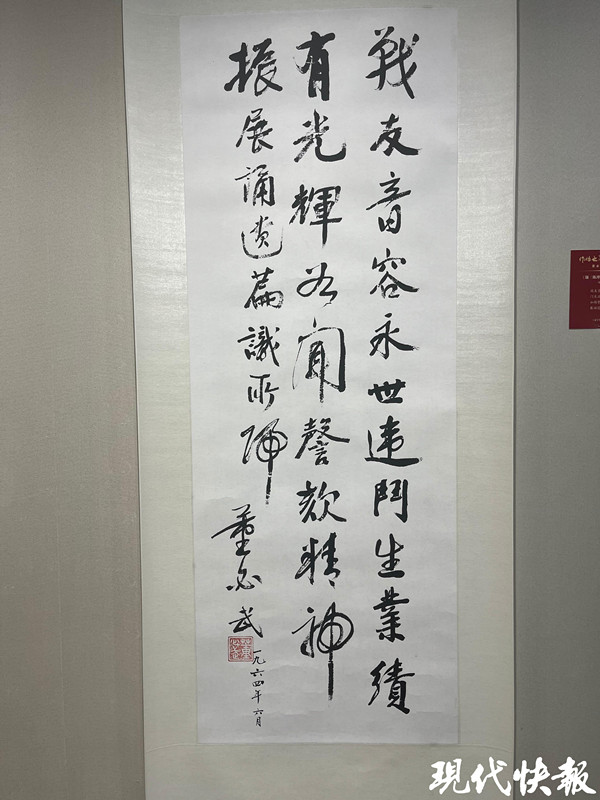 戰友音容永世違鬥生業績
有光輝如聞謦欬精神
振展誦遺篇識所歸
董必武
一九六四年六月
現代快報